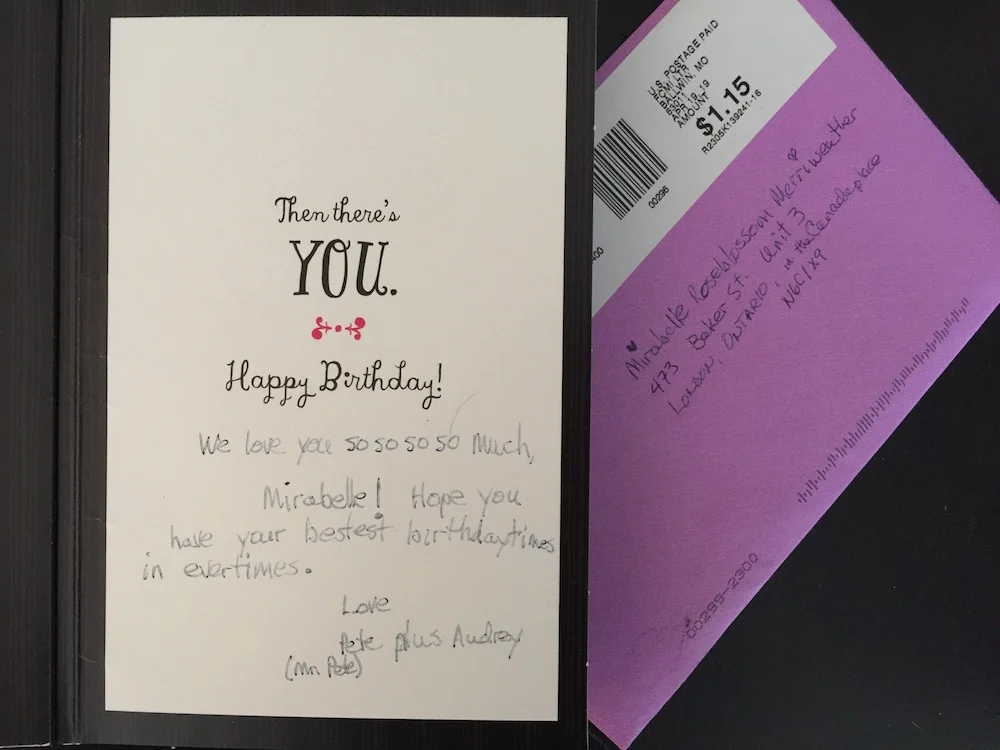 Then there's
YOU.
Happy Birthday!
We love you so so so so much,
Mirabelle! Hope you
have your bestest birthdaytimes
in evertimes.
Love
Pete plus Audrey
(mn Pete)
U.S. POSTAGE PAID
FCMI LTR
BALLWIN, MO
63011
APR 19, 19
AMOUNT
$1.15
R2305K139241-16
00296
Mirabelle Roseblossom Merriweather
473 Baker St. Unit 3
London, ONTARIO, in the Canadaplace
N6C1X9
00299-2300